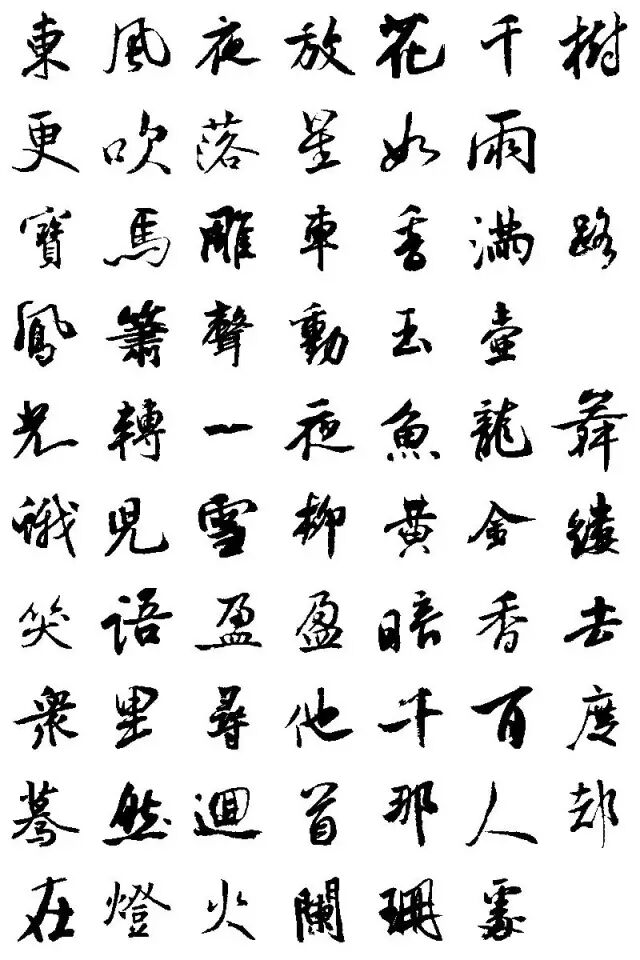 東風夜放花千樹
更吹落星如雨
寶馬雕車香滿路
鳳簫聲動玉壺
光轉一夜魚龍舞
蛾兒雪柳黃金縷
笑語盈盈暗香去
衆里尋他千百度
驀然迴首那人却
在燈火闌珊處